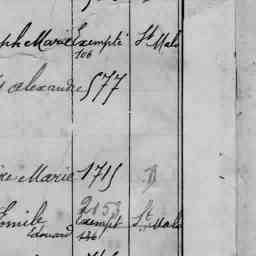 ph Marie Exempté St Malo
106
alexandre 577
re Marie 1715 D
Emile 2053 St Malo
Exempt
Edouard 136